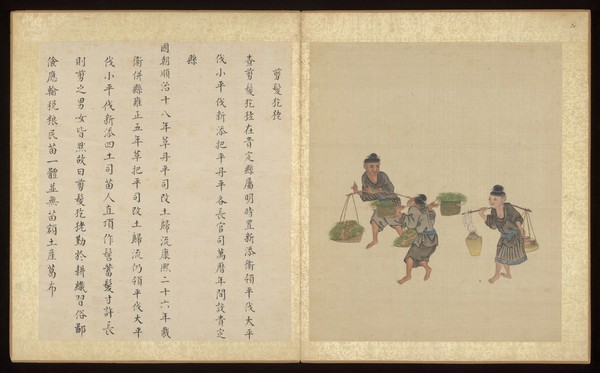 剪髮犵狫
查剪髮犵狫在貴定縣屬明時置新添衛領平伐大平
伐小平伐新添把平丹平各長官司萬曆年間設貴定
縣
國朝順治十八年草丹平司改土歸流康熙二十六年裁
衛併縣雍正五年草把平司改土歸流仍領平伐大平
伐小平伐新添四土司苗人直頂作髻蓄髮寸許長
則剪之男女皆然故曰剪髮犵狫勤於耕織習俗鄙
儉應輸稅糧民苗一體並無苗額土產葛布